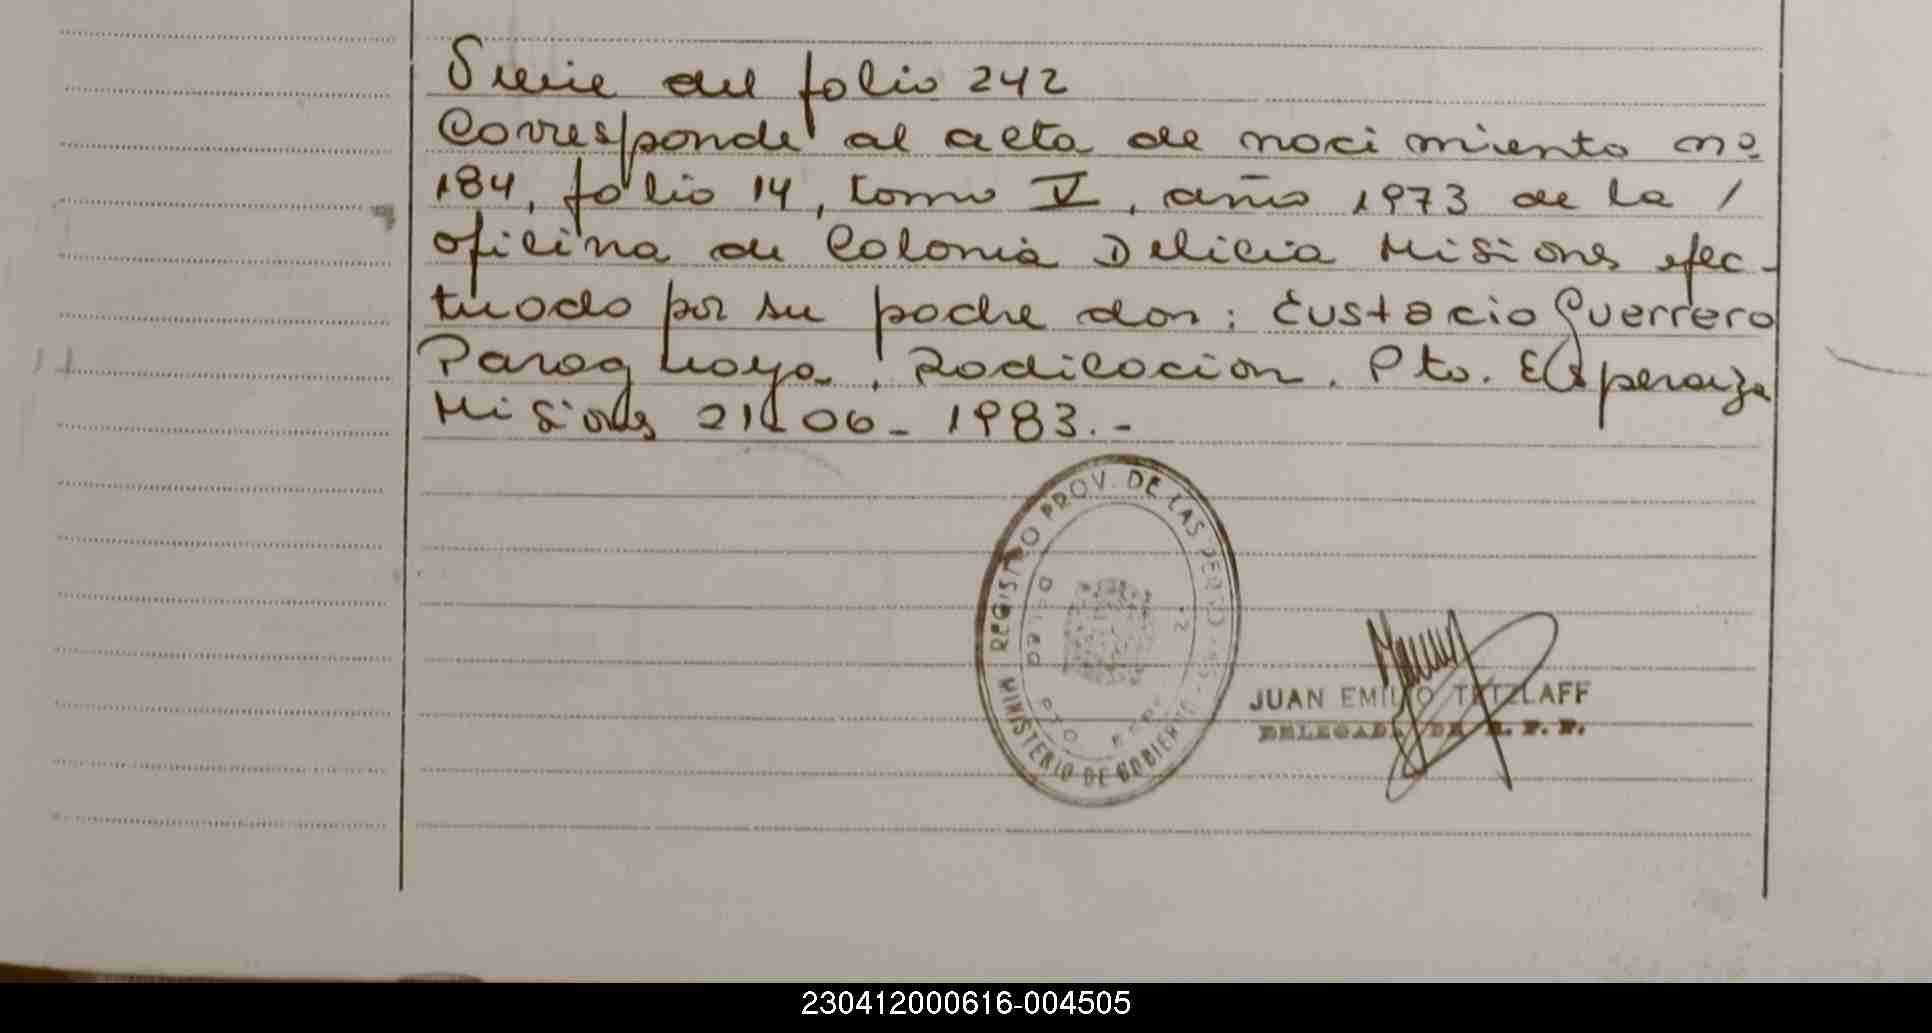 Viene del folio 242
Corresponde al acta de nacimiento nº
184, folio 14, tomo V, año 1973 de la /
oficina de Colonia Delicia Misiones efec-
tuado por su padre don: Eustacio Guerrero
Paraguayo, Radicacion. Pto. Esperanza
Misiones 21-06-1983.-
REGISTRO PROV. DE LAS PERSONAS
MINISTERIO DE GOBIERNO
PTO
JUAN EMILIO TETZLAFF
DELEGADO DE R. P. P.
230412000616-004505